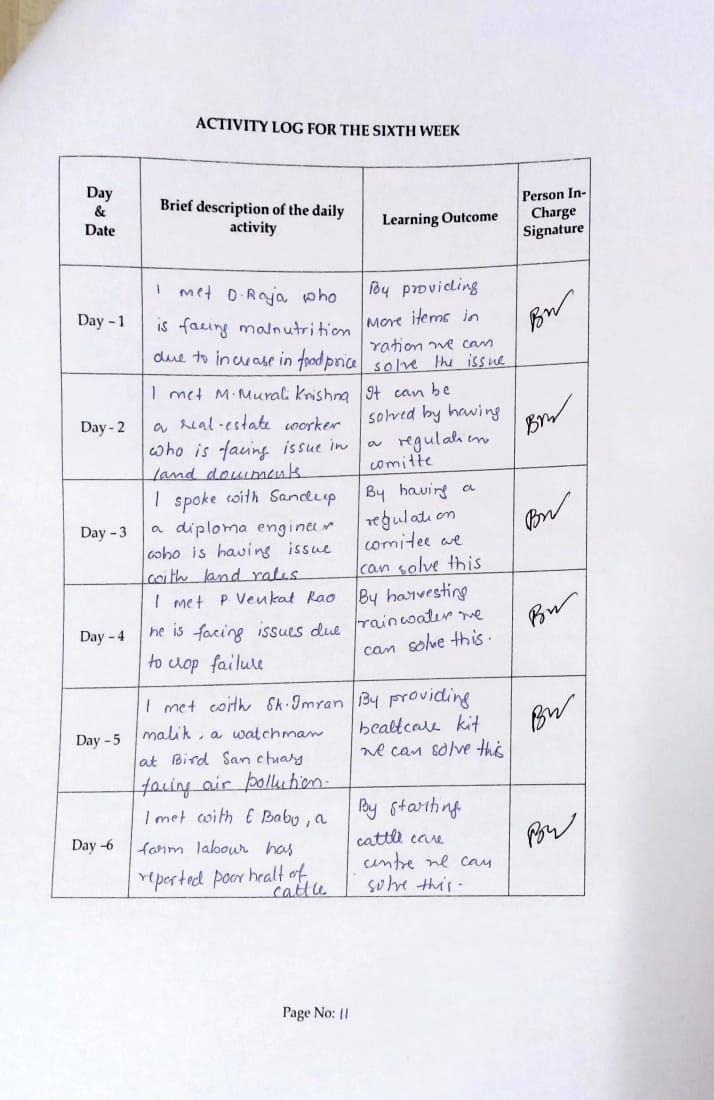 ACTIVITY LOG FOR THE SIXTH WEEK
Day
&
Date
Brief description of the daily
activity
Learning Outcome
Person In-
Charge
Signature
Day - 1
I met D. Raja who
is facing malnutrition
due to increase in food price
By providing
more items in
ration we can
solve the issue
Day - 2
I met M. Murali Krishna
a real-estate worker
who is facing issue in
land documents
It can be
solved by having
a regulation
comitte
Day - 3
I spoke with Sandeep
a diploma engineer
who is having issue
with land rates
By having a
regulation
comitee we
can solve this
Day - 4
I met P Venkat Rao
he is facing issues due
to crop failure
By harvesting
rainwater we
can solve this.
Day - 5
I met with Sk. Imran
malik, a watchman
at Bird Sanctuary
facing air pollution.
By providing
healtcare kit
we can solve this
Day -6
I met with E Babu, a
farm labour has
reported poor healt of
cattle
By starting
cattle care
centre we can
solve this.
Page No: 11